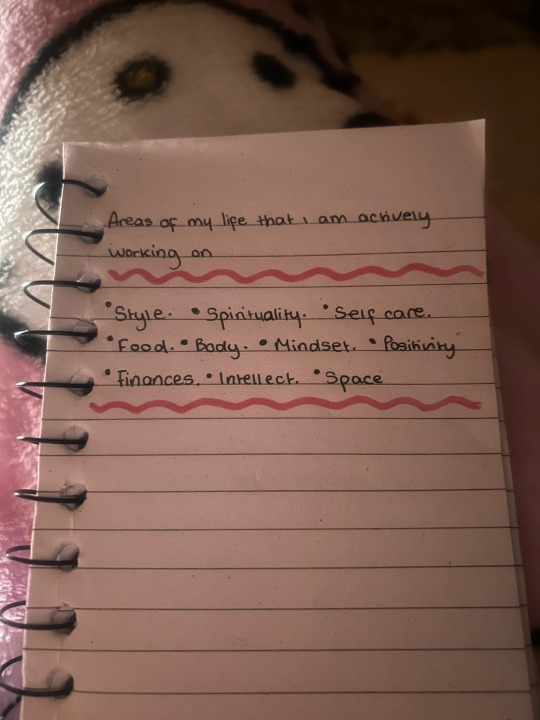 Areas of my life that i am actively
working on
•Style. •Spirituality. •Self care.
•Food. •Body. •Mindset. •Positivity
•Finances. •Intellect. •Space